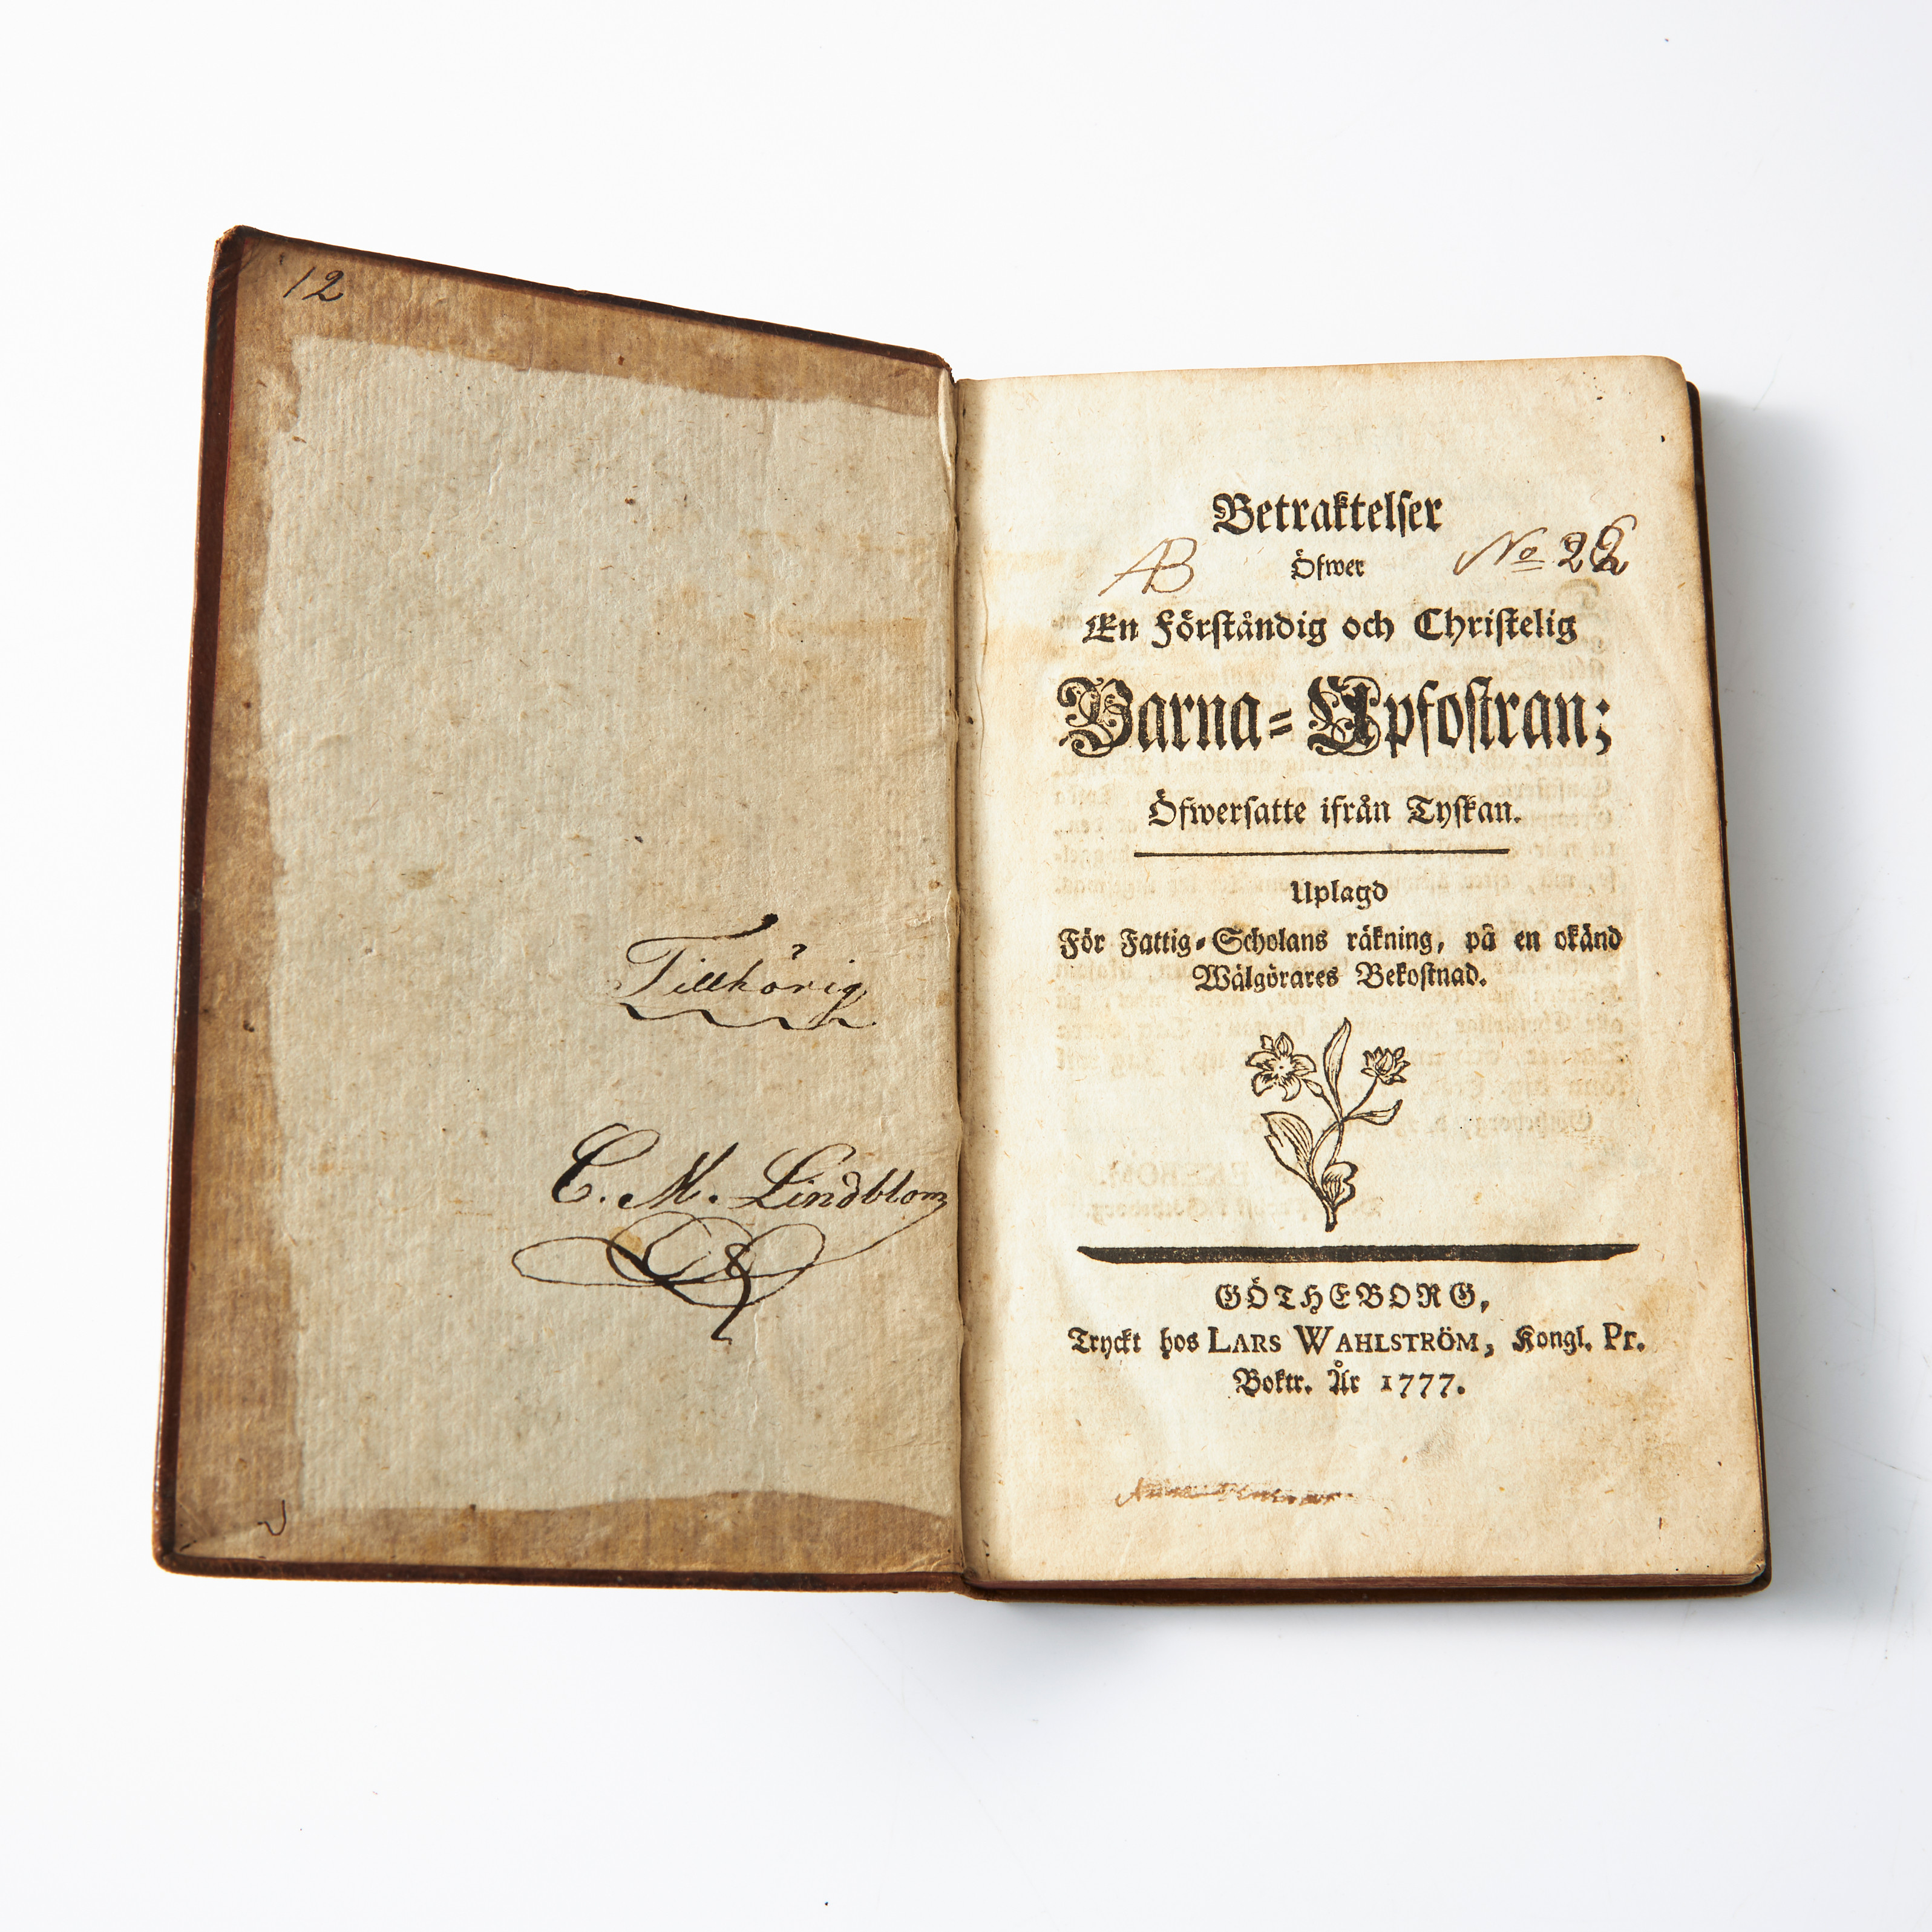 12
Tillhörig
C. M. Lindblom
Betraktelser
Öfwer
AB
No 22
En Förståndig och Christelig
Barna-Upfostran;
Öfwersatte ifrån Tyskan.
Uplagd
För Fattig-Scholans räkning, på en okänd
Wälgörares Bekostnad.
GÖTHEBORG,
Tryckt hos LARS WAHLSTRÖM, Kongl. Pr.
Boktr. År 1777.